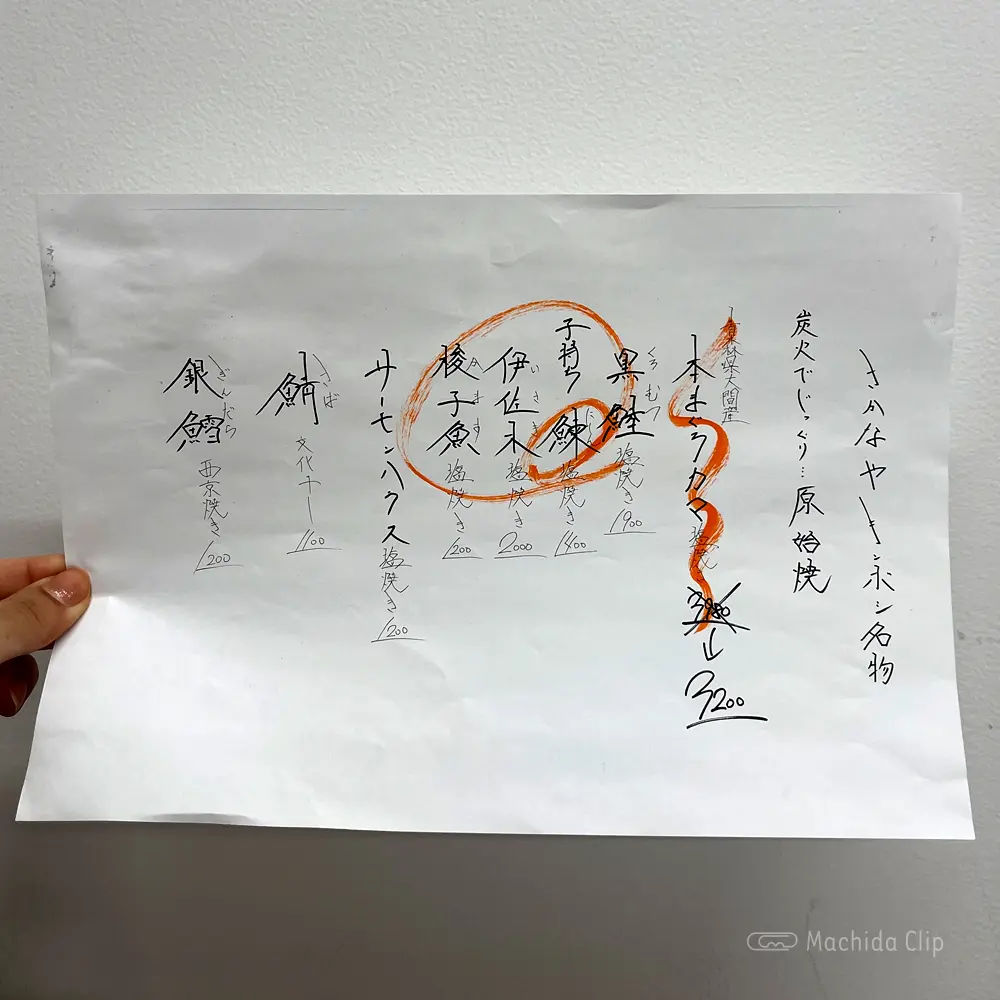 さかなやキンボシ名物
炭火でじっくり…原始焼
青森県大間産
本まぐろカマ塩焼 3200
黒鯥 くろむつ 塩焼き 1900
子持ち鰊 にしん 塩焼き 1400
伊佐木 いさき 塩焼き 2000
梭子魚 かます 塩焼き 1200
サーモンハラス塩焼き 1200
鯖 さば 文化干し 1100
銀鱈 ぎんだら 西京焼き 1200
Machida Clip